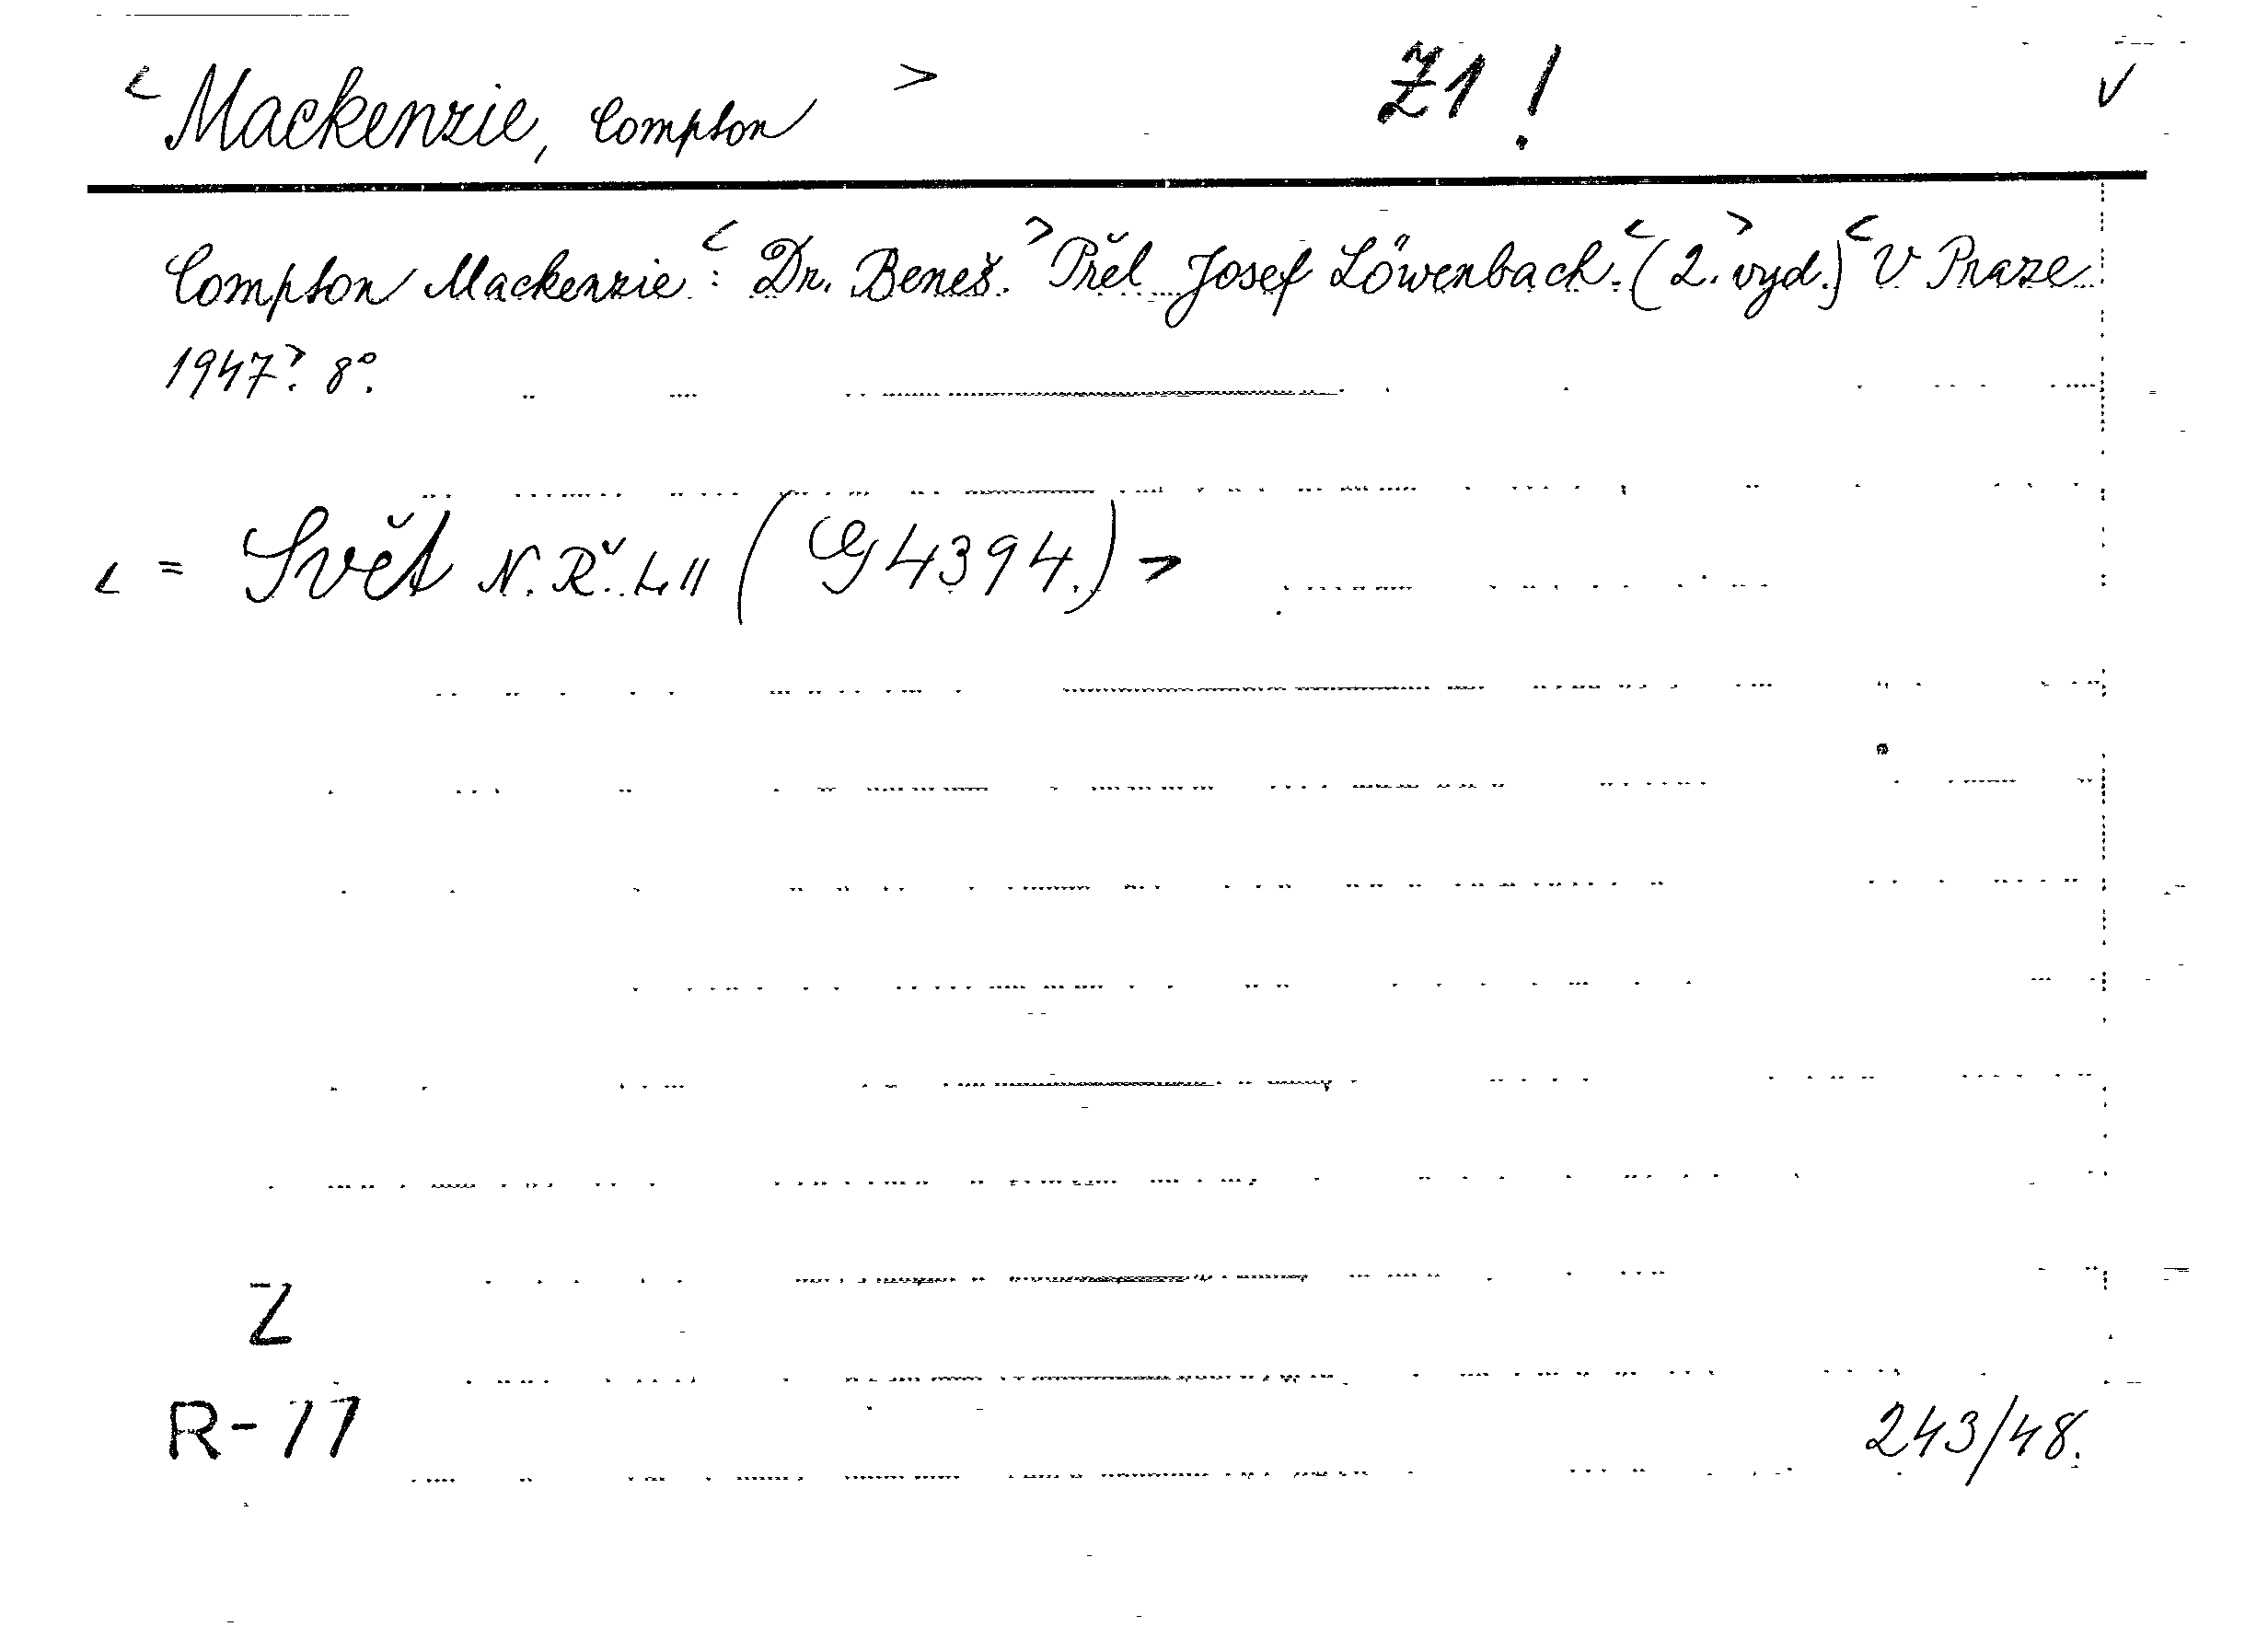 < Mackenzie, Compton > Z1! ✓
Compton Mackenzie: < Dr. Beneš. > Přel Josef Löwenbach. < (2. vyd.) > < V Praze
1947 >. 8°.
< = Svět N. Ř. LII (G 4394.) >
Z
R-77
243/48.